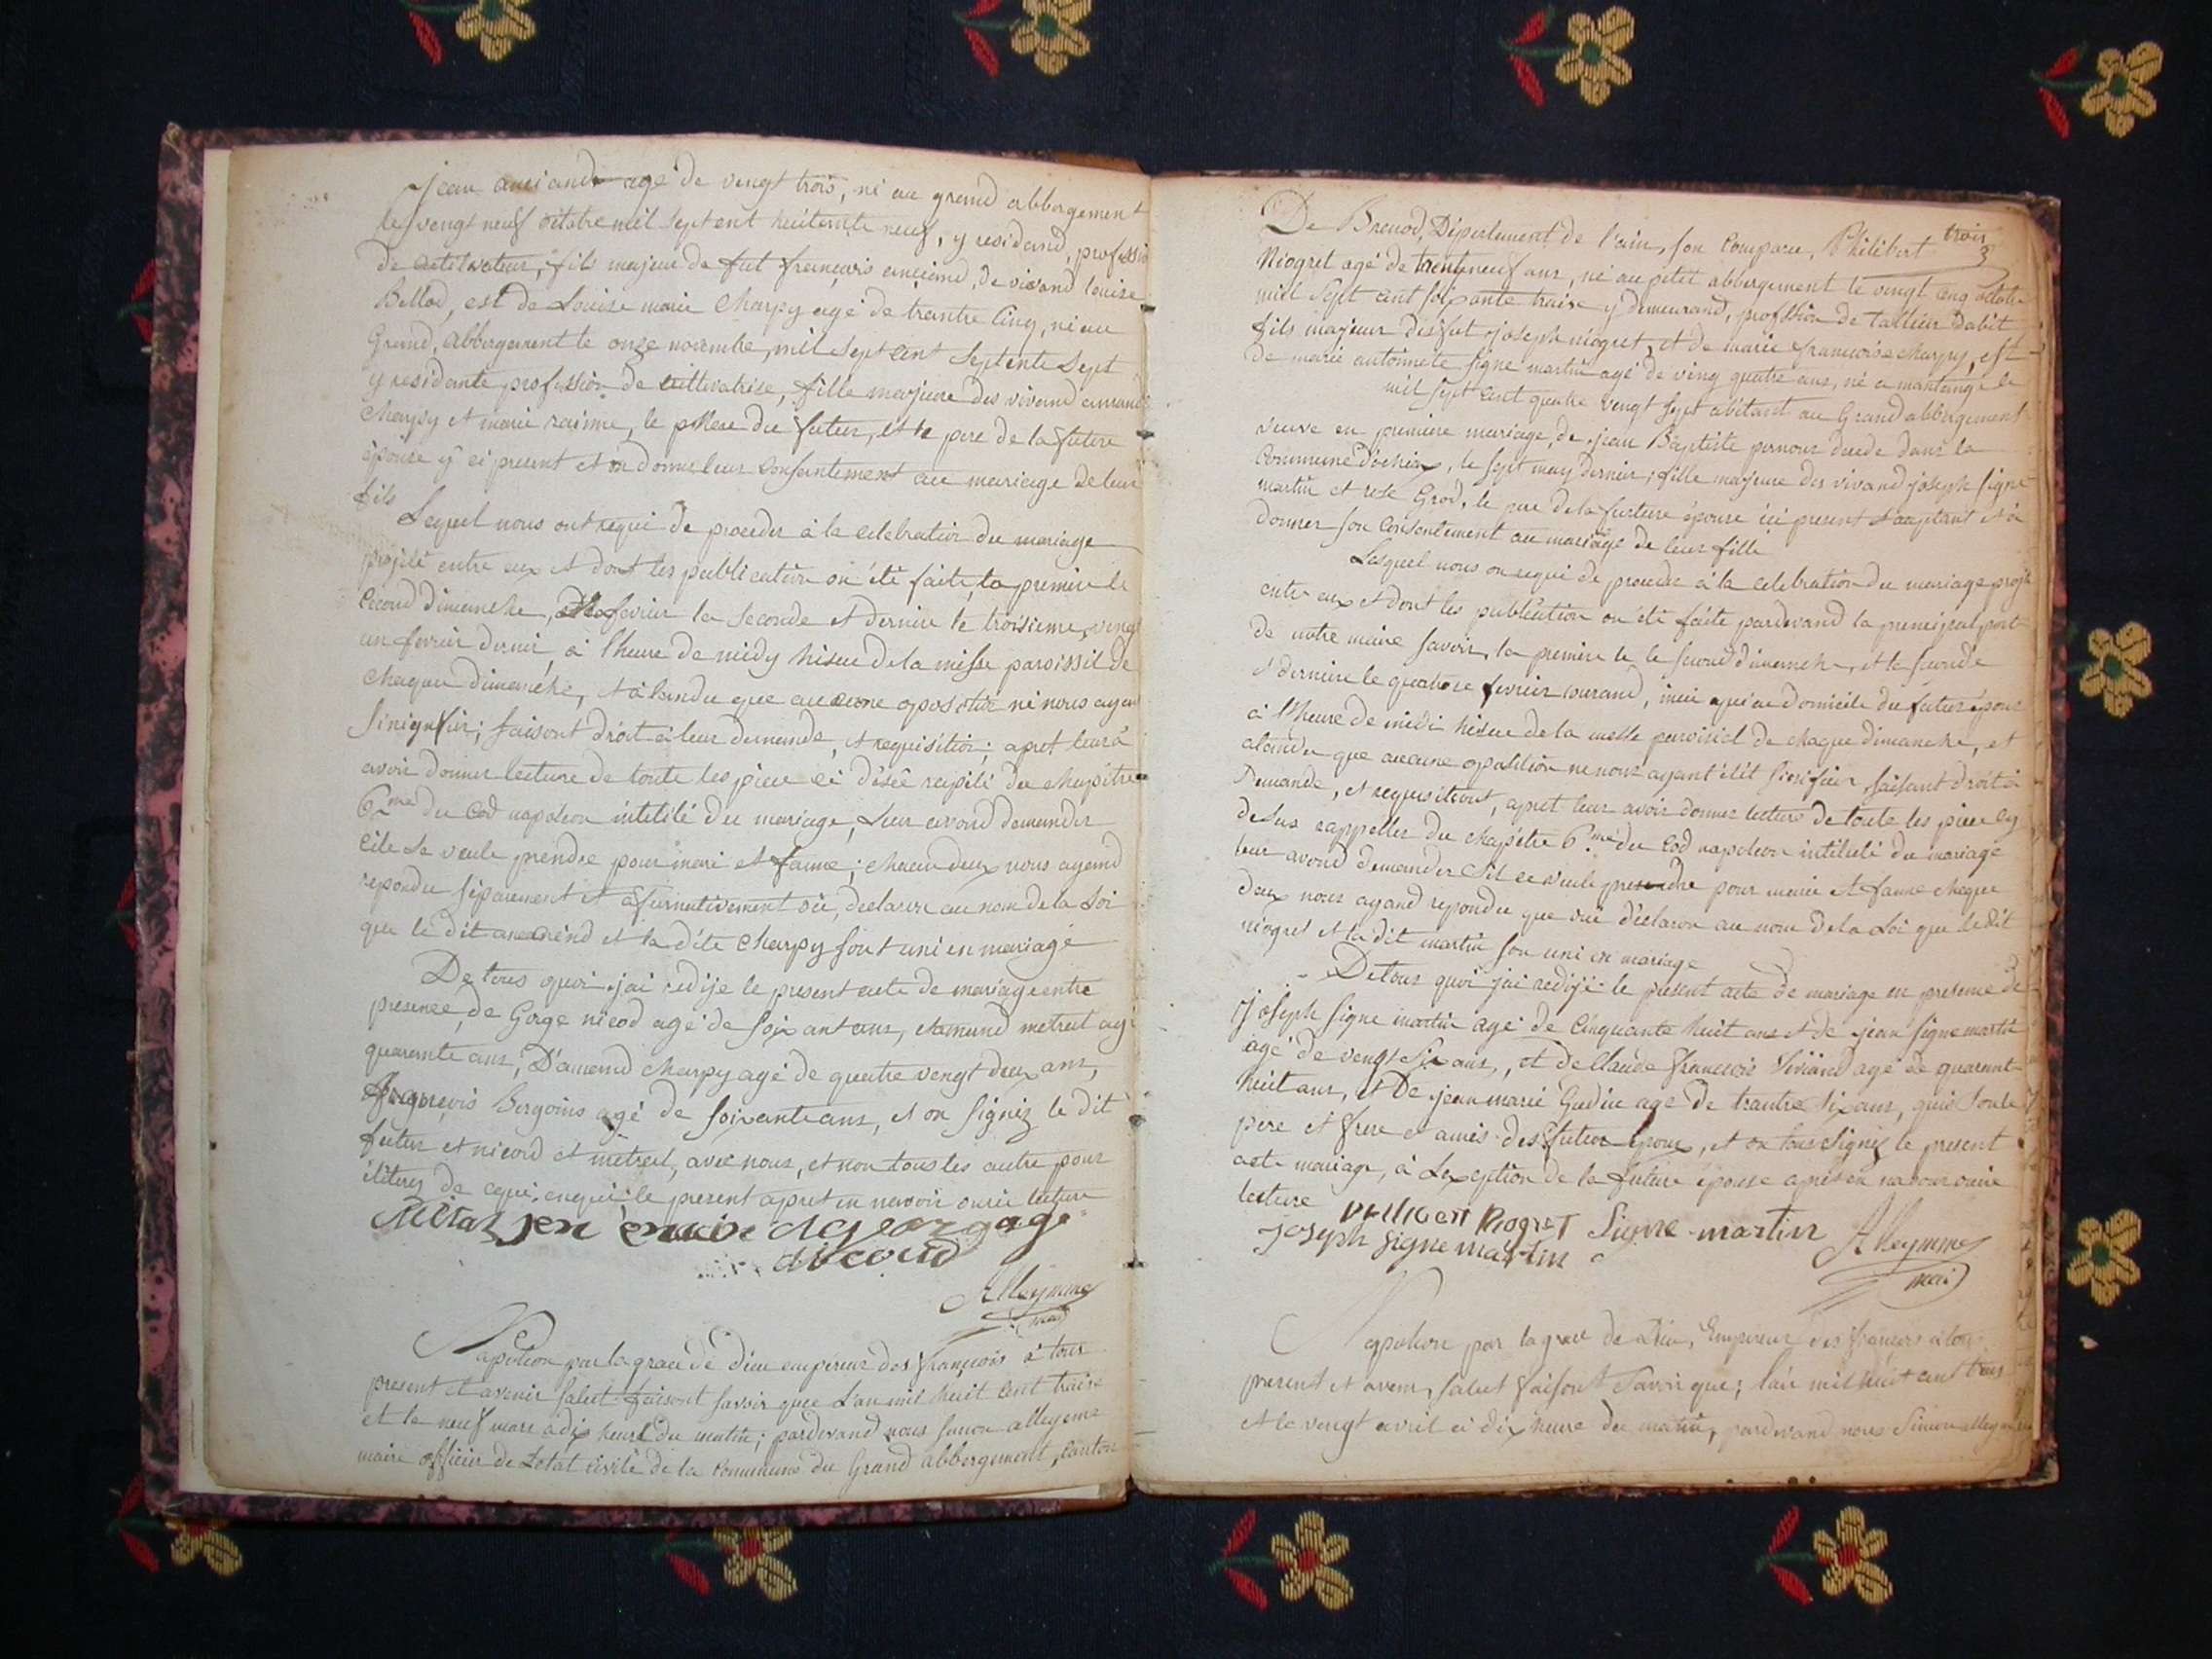 Jean agé de vengt trois, né au grand abbergement
le vengt neuf octobre mil sept cent huitente neuf, y residand, professio
de fils majeur de fut françois de vivand louise
Bellod, est de Louise marie Charpy agé de trantre Cinq, né au
Grand, abbergement le onze novembre, mil sept Cent Septente Sept
y residante profession de cultivatrise, fille majeure des vivand
Charpy et marie le du futeur, et le pere de la future
épouse y ci present et donner leur Consentement au mariage de leur
fils
Lequel nous ont requi de proceder à la celebration du mariage
projeté entre eux et dont les publication on été faite, la premire le
second dimanche, de fevrier la Seconde et dernire le troisieme, vengt
un fevrier dernir, à l'heure de midy hisue de la messe paroissil de
chaque dimanche, et à tandu que aucune oposition ne nous ayen
Sinignfiér; faisant droit à leur demande, et requisition; apret leur à
avoir donner lecture de toute les piece ci désù rapélé du chapitre
6.me du Cod napoleon intitélé du mariage, Leur avond demander
Cile Se veule prendre pour mari et famme; chacun deux nous ayend
repondu séparement et afirmativement oùi, declaron au nom de la Loi
que le dit et la déte Charpy sont uni en mariage
De tous quoi jai redije le present acte de mariage entre
presence, de Gorge nicod agé de soix ant ans, et amand metrail agé
quarante ans, D'amand charpy agé de quatre vengt deux ans,
françois Borgoins agé de soixante ans, et on Signéz le dit
futur et nicod et metrail, avec nous, et non tous les autre pour
d'etre, de cqui, enquis; le present apret en navoir ouvie lecture
jen
nicoud
Alleymme
mair
Napoleon par la grace de dieu empereur des françois à tous
present et avenir Salut faisont savoir que Lan mil huit Cent traise
et le neuf mars à dix heure du matin; pardevand nous simon alleyeme
maire officier de Letat Civile de la Commune du Grand abbergement, Canton
trois
3
De Brenod, Département de l'ain, son Comparu, Philibert
Niogret agé de trenteneuf ans, né au petit abbergement le vengt cinq octobre
mil Sept Cent Soixante traise y demeurand, profession de tallieur Dabit
fils majeur des fut joseph niogret, et de marie françoise charpy, est
de marie antoinnete Signe martin agé de ving quatre ans, né a mantange le
mil Sept Cent quatre vengt Sept abitant au Grand abbergement
veuve en premiere mariage, de jean Baptiste pernoux décédé dans la
Commune d'ochiaz, le sept may dernier; fille majeure des vivand joseph Signe
martin et rose Grod, le pere de la furture épouse ici present acceptant et à
donner son Consentement au mariage de leur fille
Lesquel nous on requi de proceder à la celebration du mariage projté
entre eux et dont les publication on été faite pardevand la prencipal port
de notre maire savoir, la premire le le second dimanche, et la seconde
et dernire le quatorze fevrier courand, insi qui au domicile du futur épous
à l'heure de midi hisue de la messe paroissiel de chaque dimanche, et
atandu que aucune oposition ne nous ayant étét sinifier, faisant droit à
Demande, et requisitions, apret leur avoir donner lecture de toute les piece cy
desus rappeller du chapitre 6.me du Cod napoleon intitulé du mariage
leur avond demander Sil ce veule prendre pour mari et famme chaque
deux nous ayand repondu que oui déclaron au nom dela Loi que ledit
niogret et la dit martin son uni en mariage
De tous quoi j'ai redijé le présent acte de mariage en presence de
Joseph Signe martin agé de Cinquante huit ans et de jean Signe martin
agé de vengt Six ans, et de Claude françois Viviand agé de quarante
huit ans, et De jean marie Gudin agé de trantre Six ans, qui Sont le
pere et frere et amis des futur époux, et on tous Signéz le present
acte mariage, à Lexception de la future épouse apres en navoir ouvie
lecture
philibert Niogret Signe-martin
joseph signe martin
Alleymme
mair
Napoleon par la grace de Dieu, Empereur des françois à tous
present et avenir, salut faisont Savoir que; l'an mil huit cent treis
et le vengt avril à dix heure du matin, pardevand nous Simon alleyme